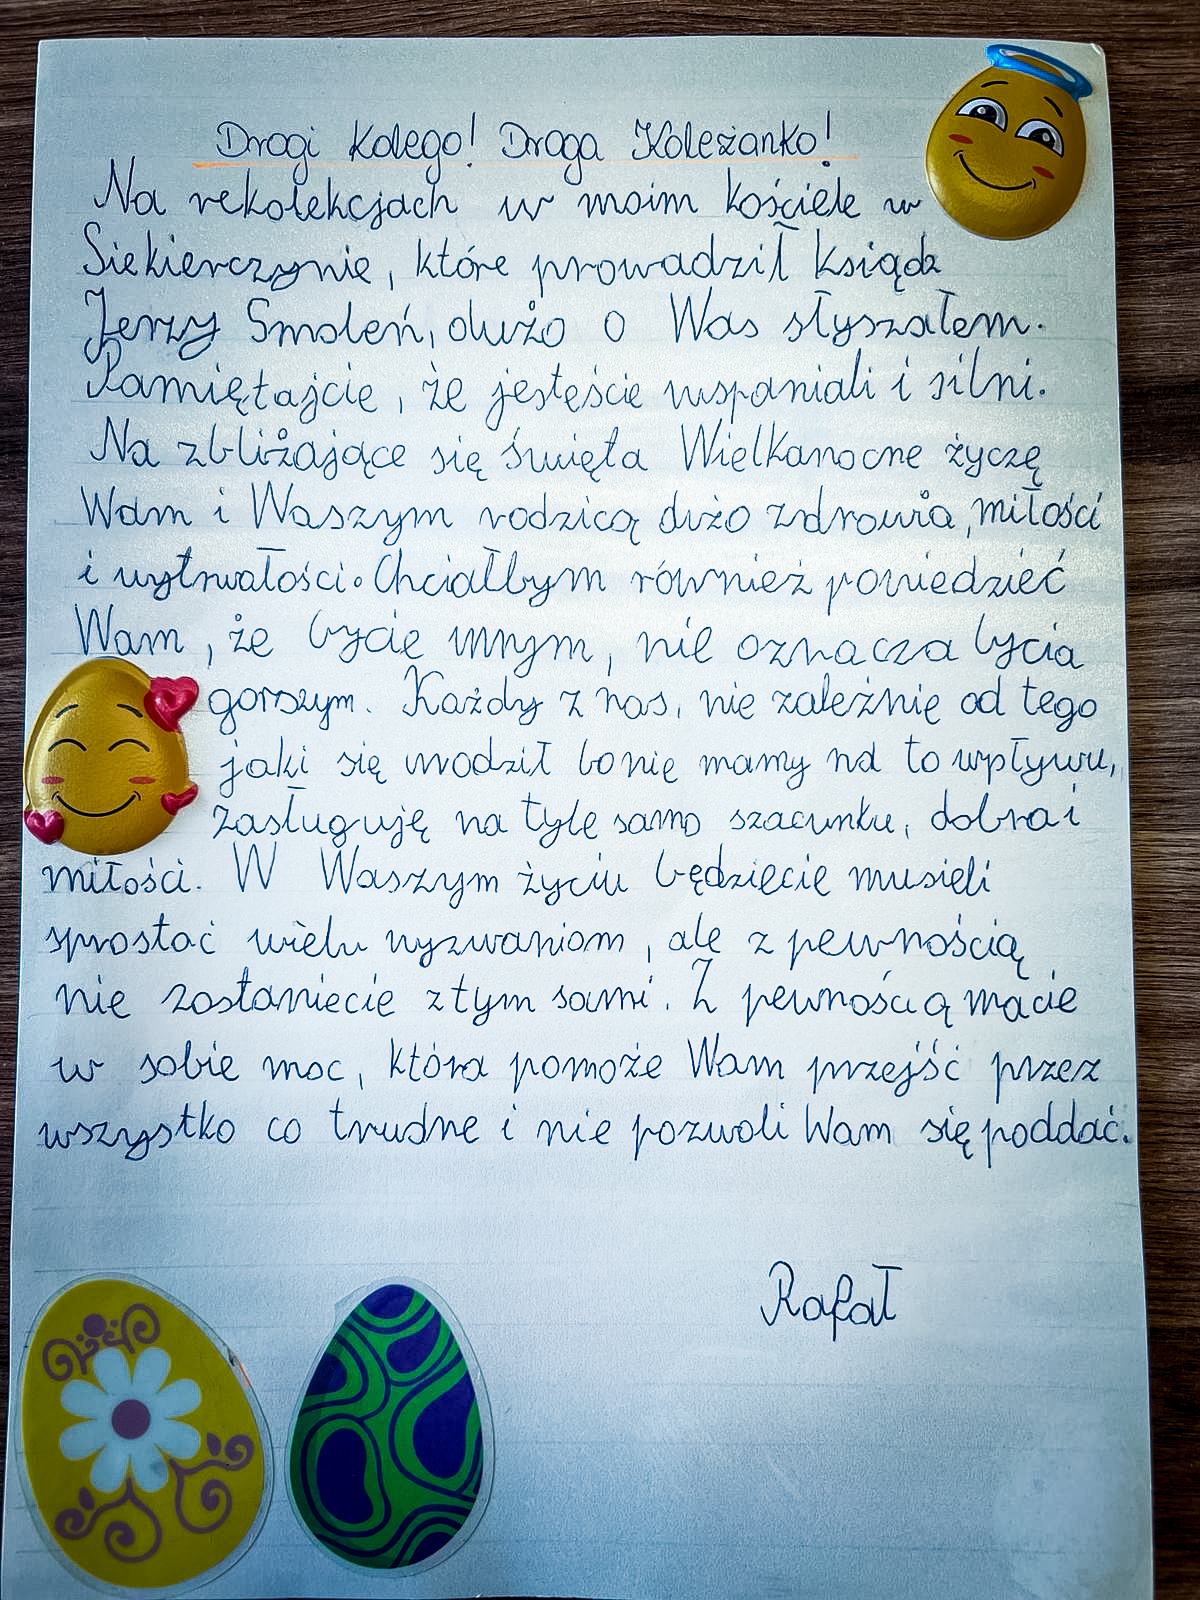 Drogi Kolego! Droga Koleżanko!
Na rekolekcjach w moim kościele w
Siekierczynie, które prowadził ksiądz
Jerzy Smoleń, dużo o Was słyszałem.
Pamiętajcie, że jesteście wspaniali i silni.
Na zbliżające się święta Wielkanocne życzę
Wam i Waszym rodzicą dużo zdrowia, miłości
i wytrwałości. Chciałbym również powiedzieć
Wam, że bycie innym, nie oznacza bycia
gorszym. Każdy z nas, nie zależnie od tego
jaki się urodził bo nie mamy na to wpływu,
zasługuję na tyle samo szacunku, dobra i
miłości. W Waszym życiu będziecie musieli
sprostać wielu wyzwaniom, ale z pewnością
nie zostaniecie z tym sami. Z pewnością macie
w sobie moc, która pomoże Wam przejść przez
wszystko co trudne i nie pozwoli Wam się poddać.
Rafał